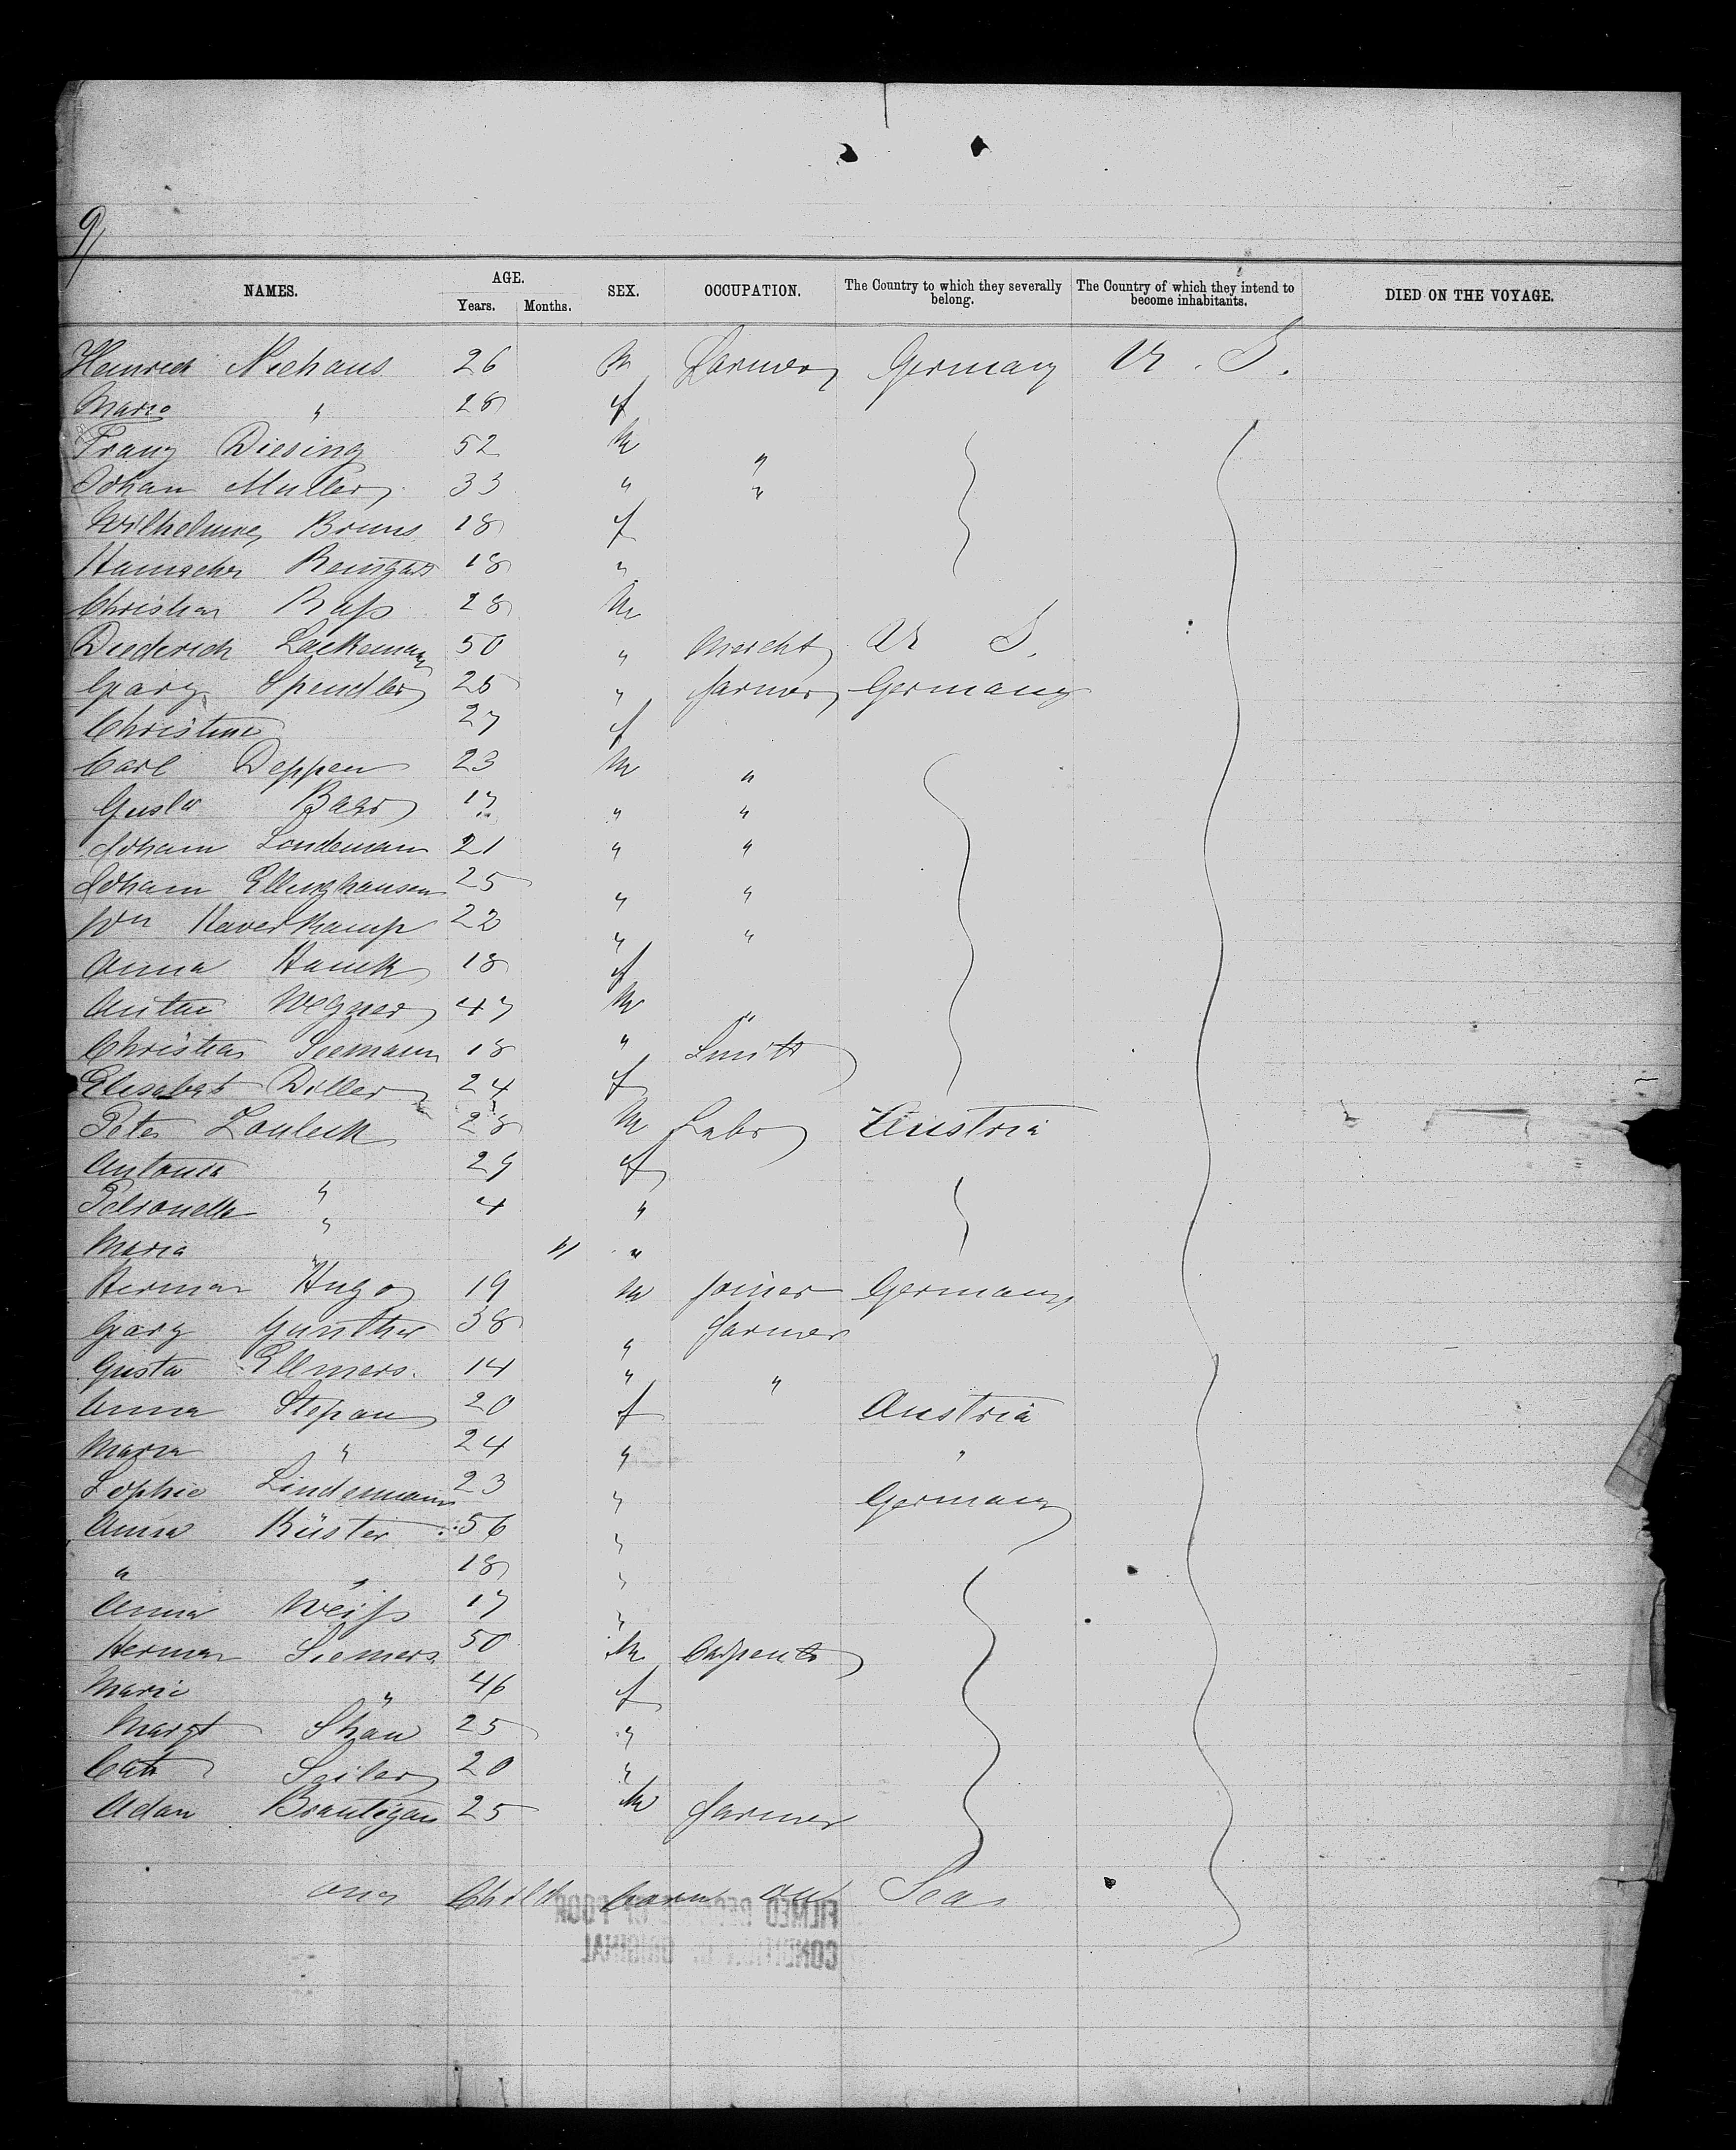 9/
NAMES. AGE. Years. Months. SEX. OCCUPATION. The Country to which they severally belong. The Country of which they intend to become inhabitants. DIED ON THE VOYAGE.
Heinrich Niehaus 26 M Farmer Germany U. S.
Marie " 28 f
Franz Diesing 52 M "
Johan Muller 33 " "
Wilhelmine Bruns 18 f
18 "
Christian 28 M
Diederich Lackemann 50 " Mercht U S.
Georg Spendler 25 " farmer Germany
Christine 27 f
Carl Deppen 23 M "
Gusta Baer 17 " "
Joham Lindemann 21 " "
Joham Ellinghausen 25 " "
Wm Haverkamp 22 " "
Anna Hauck 18 f
Wegner 47 M "
Christian Seemann 18 " Smitt
Elisabet Diller 24 f
Peter Zoubeck 28 M Labr Austria
Antonia " 29 f
Petronella " 4 "
Maria " "
Herman Hugo 19 M joiner Germany
Georg Gunther 38 " farmer
Gusta Ellmers. 14 " "
Anna Stepan 20 f Austria
Maria " 24 " "
Sophie Lindemann 23 " Germany
Anna Küster 56 "
" " 18 "
Anna Weiss 17 "
Herman Siemers 50 M Carpentr
Marie " 46 f
Margt Shau 25 "
Cath Seiler 20 "
Adam Brautigan 25 M farmer
one Child born on Sea
FILMED BECAUSE OF POOR
CONDITION OF ORIGINAL